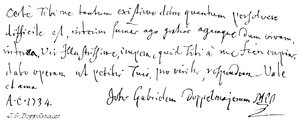 Certe Tibi me tantum existimo debere quantum persolvere
difficile est, interim summas ago gratias agamque dum vivam.
interea, Vir Illustrissime, impera, quid Tibi à me fieri cupias
dabo operam ut petitis Tuis, pro viribus, respondeam. Vale
et ama
A.C. 1734. Joh. Gabrielem Doppelmajerum
J. G. Doppelmaier